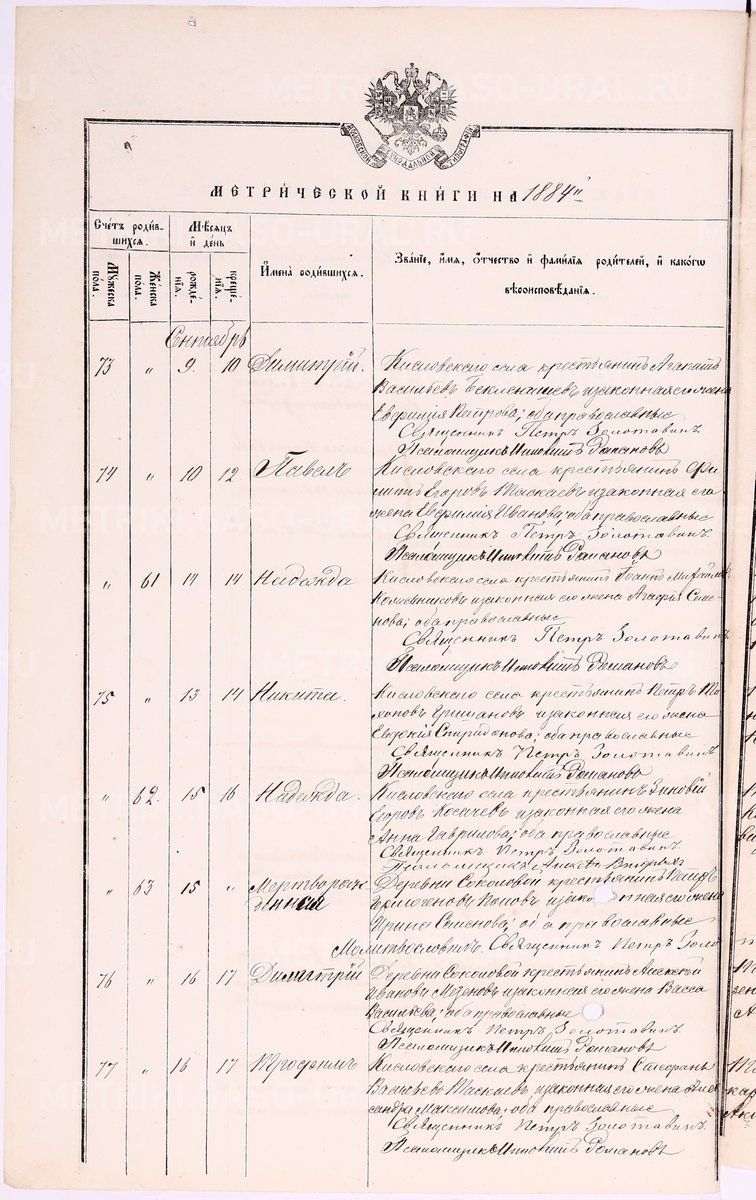 МОСКОВСКОЙ СѴНОДАЛЬНОЙ ТИПОГРАФІИ
МЕТРИ́ЧЕСКОЙ КНИ́ГИ НА 1884 г.
Счетъ роди́в-
шихся.
М̾ѣсяцъ
и҆ де́нь
И҆мена̀ роди́вшихся.
Зва́нїе, и҆́мя, ѻ҆́тчество и҆ фамилїѧ роди́телей, и҆ како́гѡ
вѣроисповѣ́данїѧ.
Му́жеска
по́ла.
Же́нска
по́ла.
рожде́-
нїѧ.
креще́-
нїѧ.
Сентябрь
73 „ 9. 10 Димитрій. Кисловскаго села крестьянинъ Агапитъ
Васильевъ Бекленищевъ и законная его жена
Евфимія Петрова; оба православные
Священникъ Петръ Золотавинъ.
Псаломщикъ Ипполитъ Романовъ
74 „ 10 12 Павелъ Кисловскаго села крестьянинъ Фи-
липпъ Егоровъ Таскаевъ и законная его
жена Евфимія Иванова; оба православные
Священникъ Петръ Золотавинъ.
Псаломщикъ Ипполитъ Романовъ
„ 61 14 Надежда Кисловскаго села крестьянинъ Іоаннъ Михайловъ
и законная его жена Агафія Симе-
нова; оба православные
Священникъ Петръ Золотавинъ
Псаломщикъ Ипполитъ Романовъ
75 „ 13 14 Никита. Кисловскаго села крестьянинъ Петръ
и законная его жена
Евгенія Спиридонова; оба православные
Священникъ Петръ Золотавинъ
Псаломщикъ Ипполитъ Романовъ
„ 62. 15 16 Надежда. Кисловскаго села крестьянинъ Зиновій
Егоровъ Косачевъ и законная его жена
Анна Гаврилова; оба православные
Священникъ Петръ Золотавинъ.
Псаломщикъ
„ 63 15 „ Мертворож- Деревни Соколовой крестьянинъ Петръ
денная Поповъ и зако нная его жена
Ирина Семенова; оба православные
Молитвословилъ Священникъ Петръ Золо
76 „ 16 17 Димитрій Деревни Соколовой крестьянинъ Алексѣй
Ивановъ Мезеновъ и законная его жена Васса
Васильева; оба православные
Священникъ Петръ Золотавинъ.
Псаломщикъ Ипполитъ Романовъ
77 „ 16 17 Трофимъ Кисловскаго села крестьянинъ Стефанъ
Васильевъ Таскаевъ и законная его жена Алек-
сандра Максимова; оба православные
Священникъ Петръ Золотавинъ.
Псаломщикъ Ипполитъ Романовъ